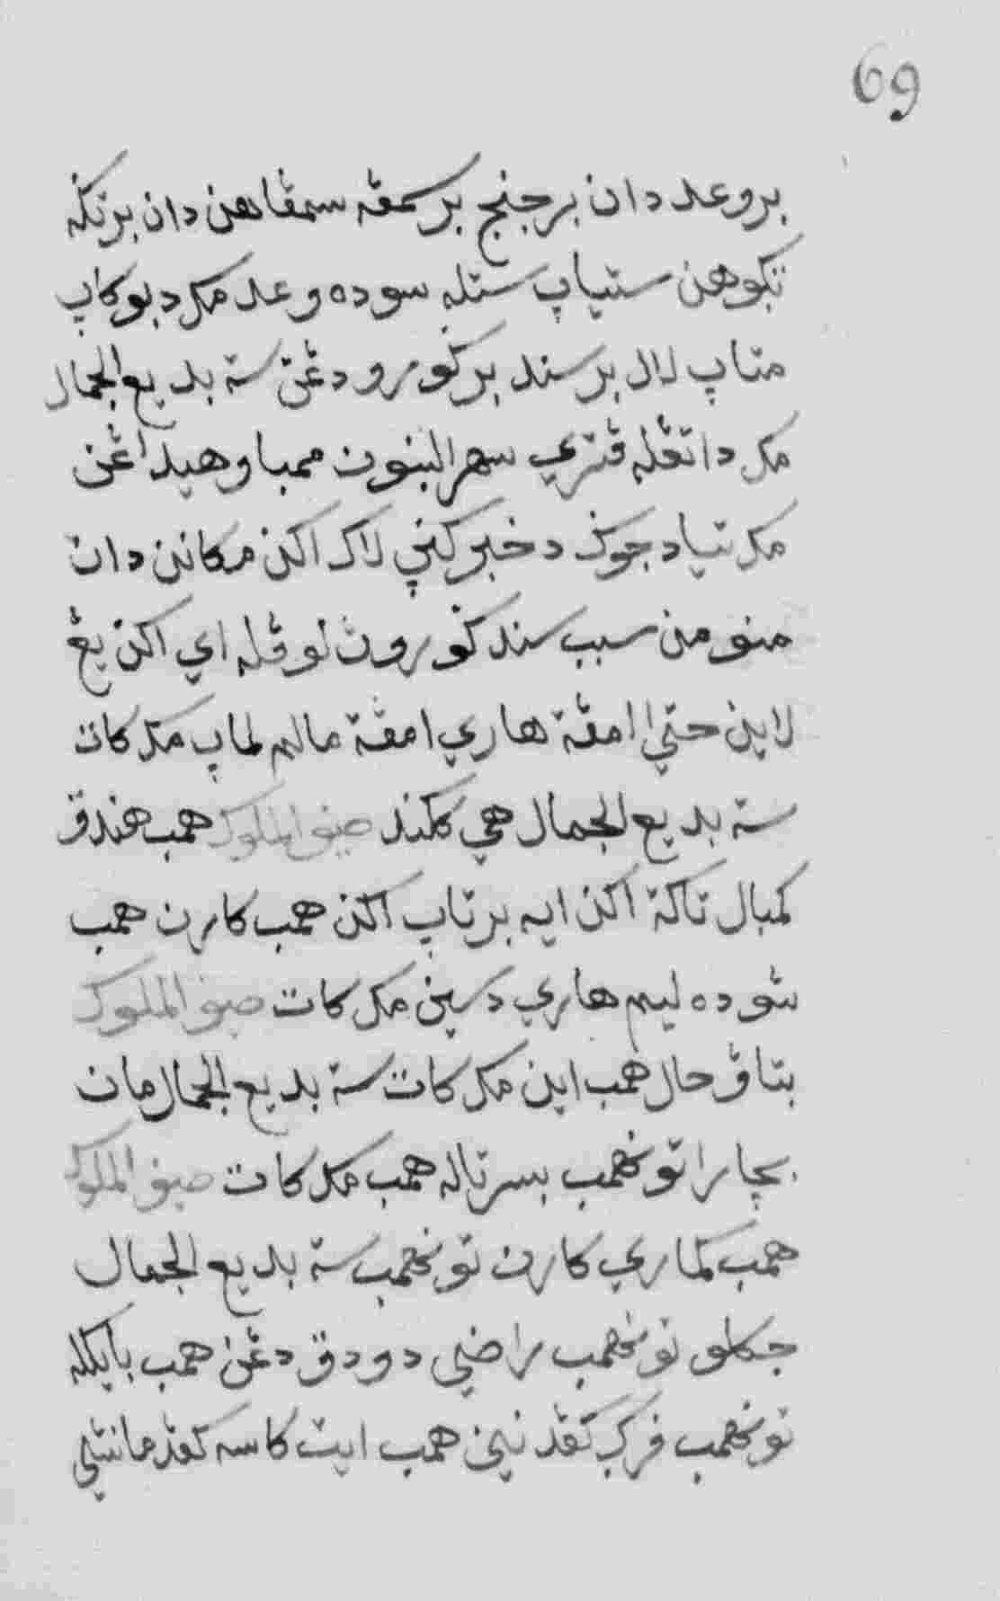 69
بروعد دان برجنج بر سمڤه سمڤاهن دان برتكه
تكوهن ستياپ ستله سوده وعد مک دبوكاپ
متاپ لال برسند بركورو دغن ستـ بديع الجمال
مک داتڠله ڤتري سهر البنون ممباو هيداڠن
مک تياد جوݢ دخبركنڽ لاݢ اكن مكانن دان
منومن سبب سند كورون لوڤله اي اكن يڠ
لاين حتي امڤة هاري امڤة مالم لماپ مک كات
ستـ بديع الجمال هي ككند صيف الملوك همب هندق
كمبال تاكة اكن ايه برتاپ اكن همب كارن همب
سوده ليم هاري دسين مک كات صيف الملوك
بتاڤ حال همب اين مک كات ستـ بديع الجمال مان
بچارا توان همب بسرتاله همب مک كات صيف الملوك
همب كماري كارن توان همب ستـ بديع الجمال
جكلو توان همب راضي دودق دڠن همب بايكله
توان همب فركـ كڤد نين همب ايت كاسه كڤد مانتڽ